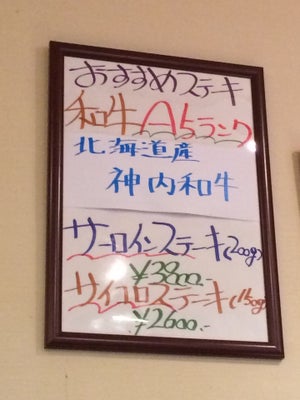 おすすめステーキ
和牛A5ランク
北海道産
神内和牛
サーロインステーキ(200g)
¥3800.-
サイコロステーキ(150g)
¥2600.-